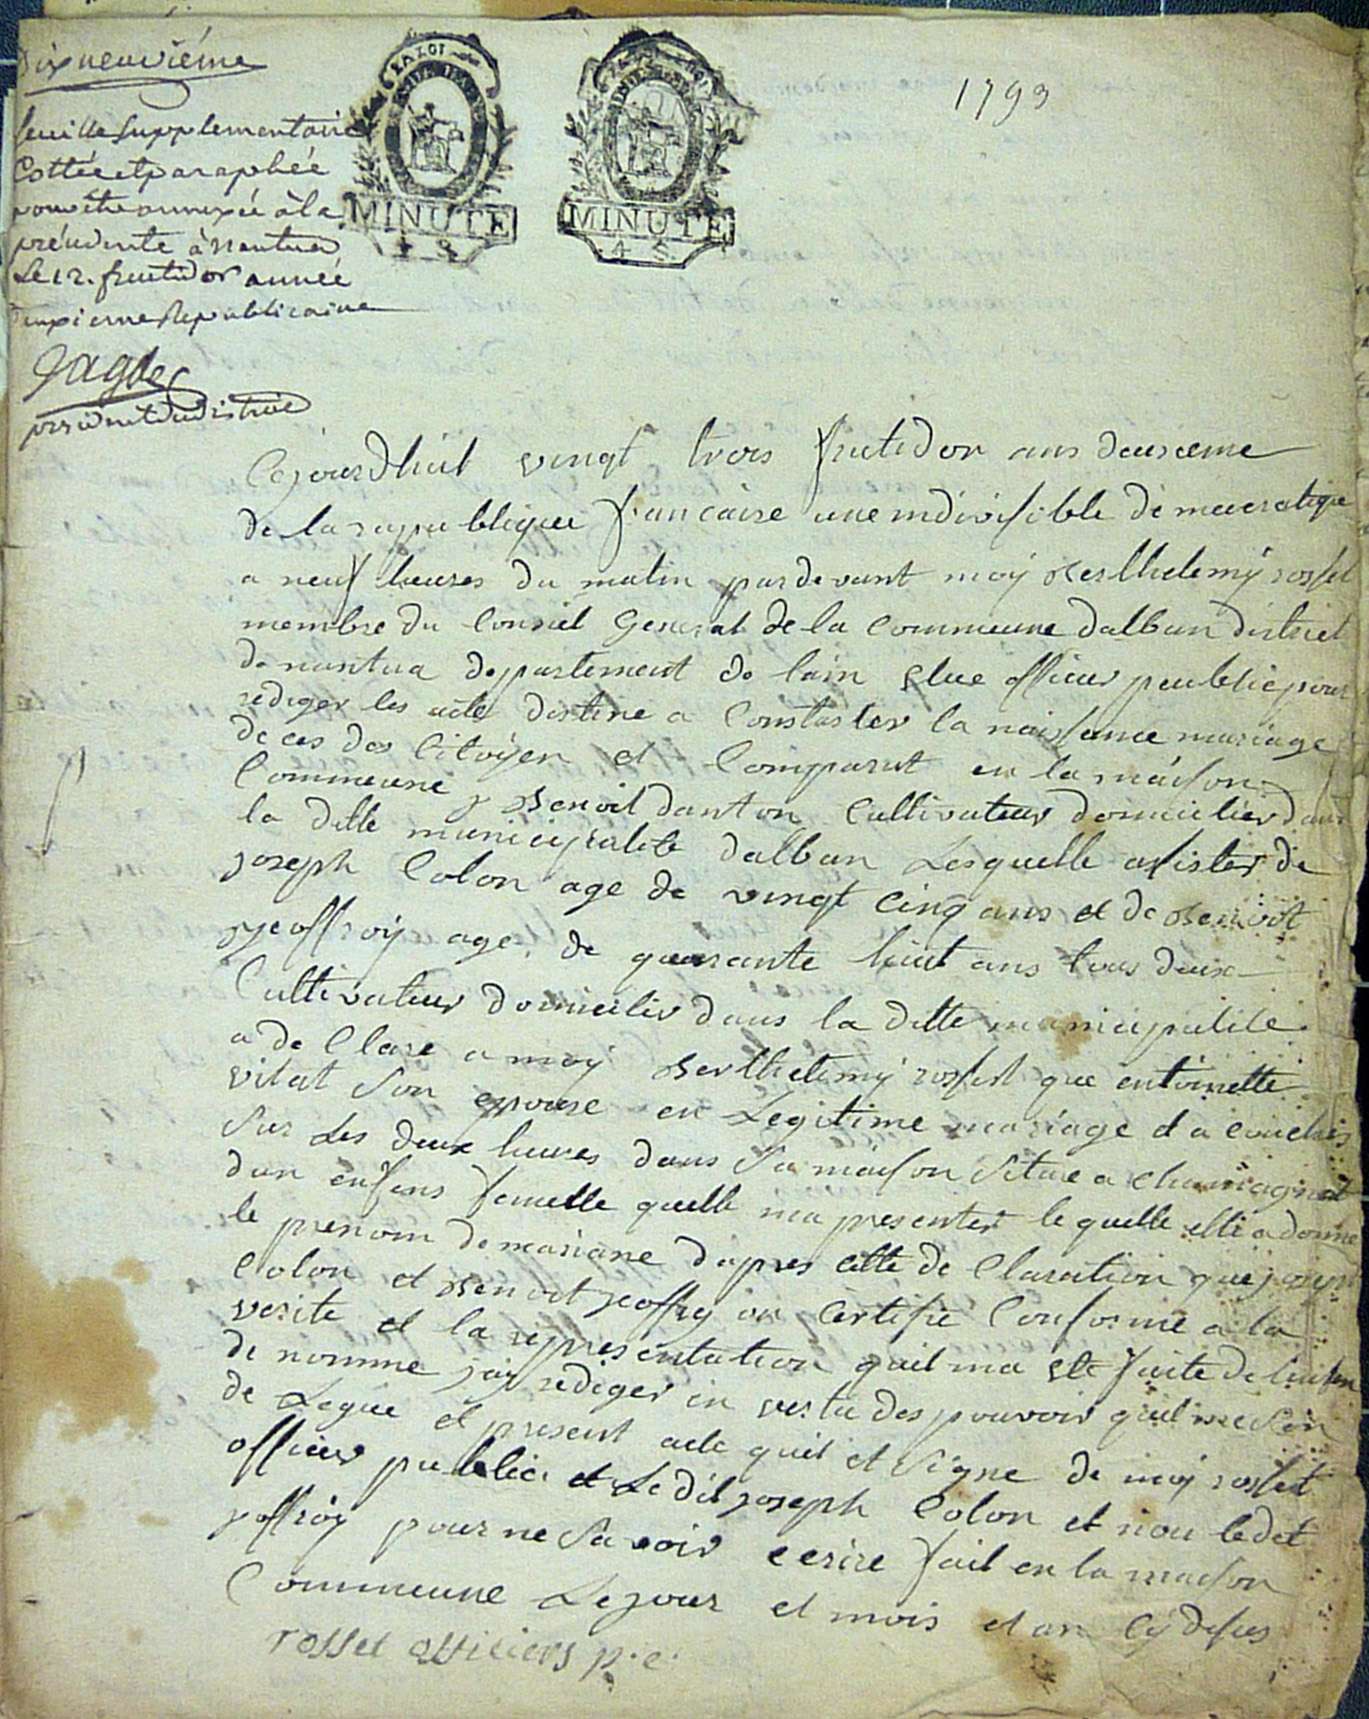 dixneuviéme
feuille supplementaire
Cottée et paraphée
pour être annexée à la
précédente à Nantua
Le 12. fructidor année
deuxieme Republicaine
président du district
LA LOI
MINUTE
4 S.
LA LOI
MINUTE
4 S.
1793
Cejourdhuit vingt trois frutidor ans deuxieme
de la republique francaise une indivisible démocratique
a neuf heures du matin pardevant moy Berthelemy rosset
membre du Conseil General de la Commeune dalban district
de nantua departement de lain elue officier peublic pour
rediger les acte distine a Constaster la naissance mariage
de ces des Citoyen et Comparut en la maison
Commeune Benoit danton Cultivateur domicilier dans
la ditte municipalite dalban Lesquelle assister de
joseph Colon age de vingt cinq ans et de Benoit
jeoffroy age de quarante huit ans tous deux
Cultivateur domicilier dans la ditte municipalite
a de Clare a moy Berthelemy rosset que entoinette
vitat son epouse en Legitime mariage et a couches
sur Les deux heures dans sa maison situe a chamagnat
dun enfens femelle quelle ma presenter le quelle elle a donne
le prenom de mariane dapres cette de Claration que joseph
Colon et Benoit jeoffry on Certifie Conforme a la
verite et la representation quil ma ete faite de lenfen
de nomme jaÿ rediger en vertu des pouvoir quil me son
de Legue el present acte quil et signe de moy rosset
officier public et Ledit joseph Colon et non ledit
joffroy pour ne savoir ecrire fait en la maison
Commeune Lejour et mois et an Cy desus
rosset officiers p.c.